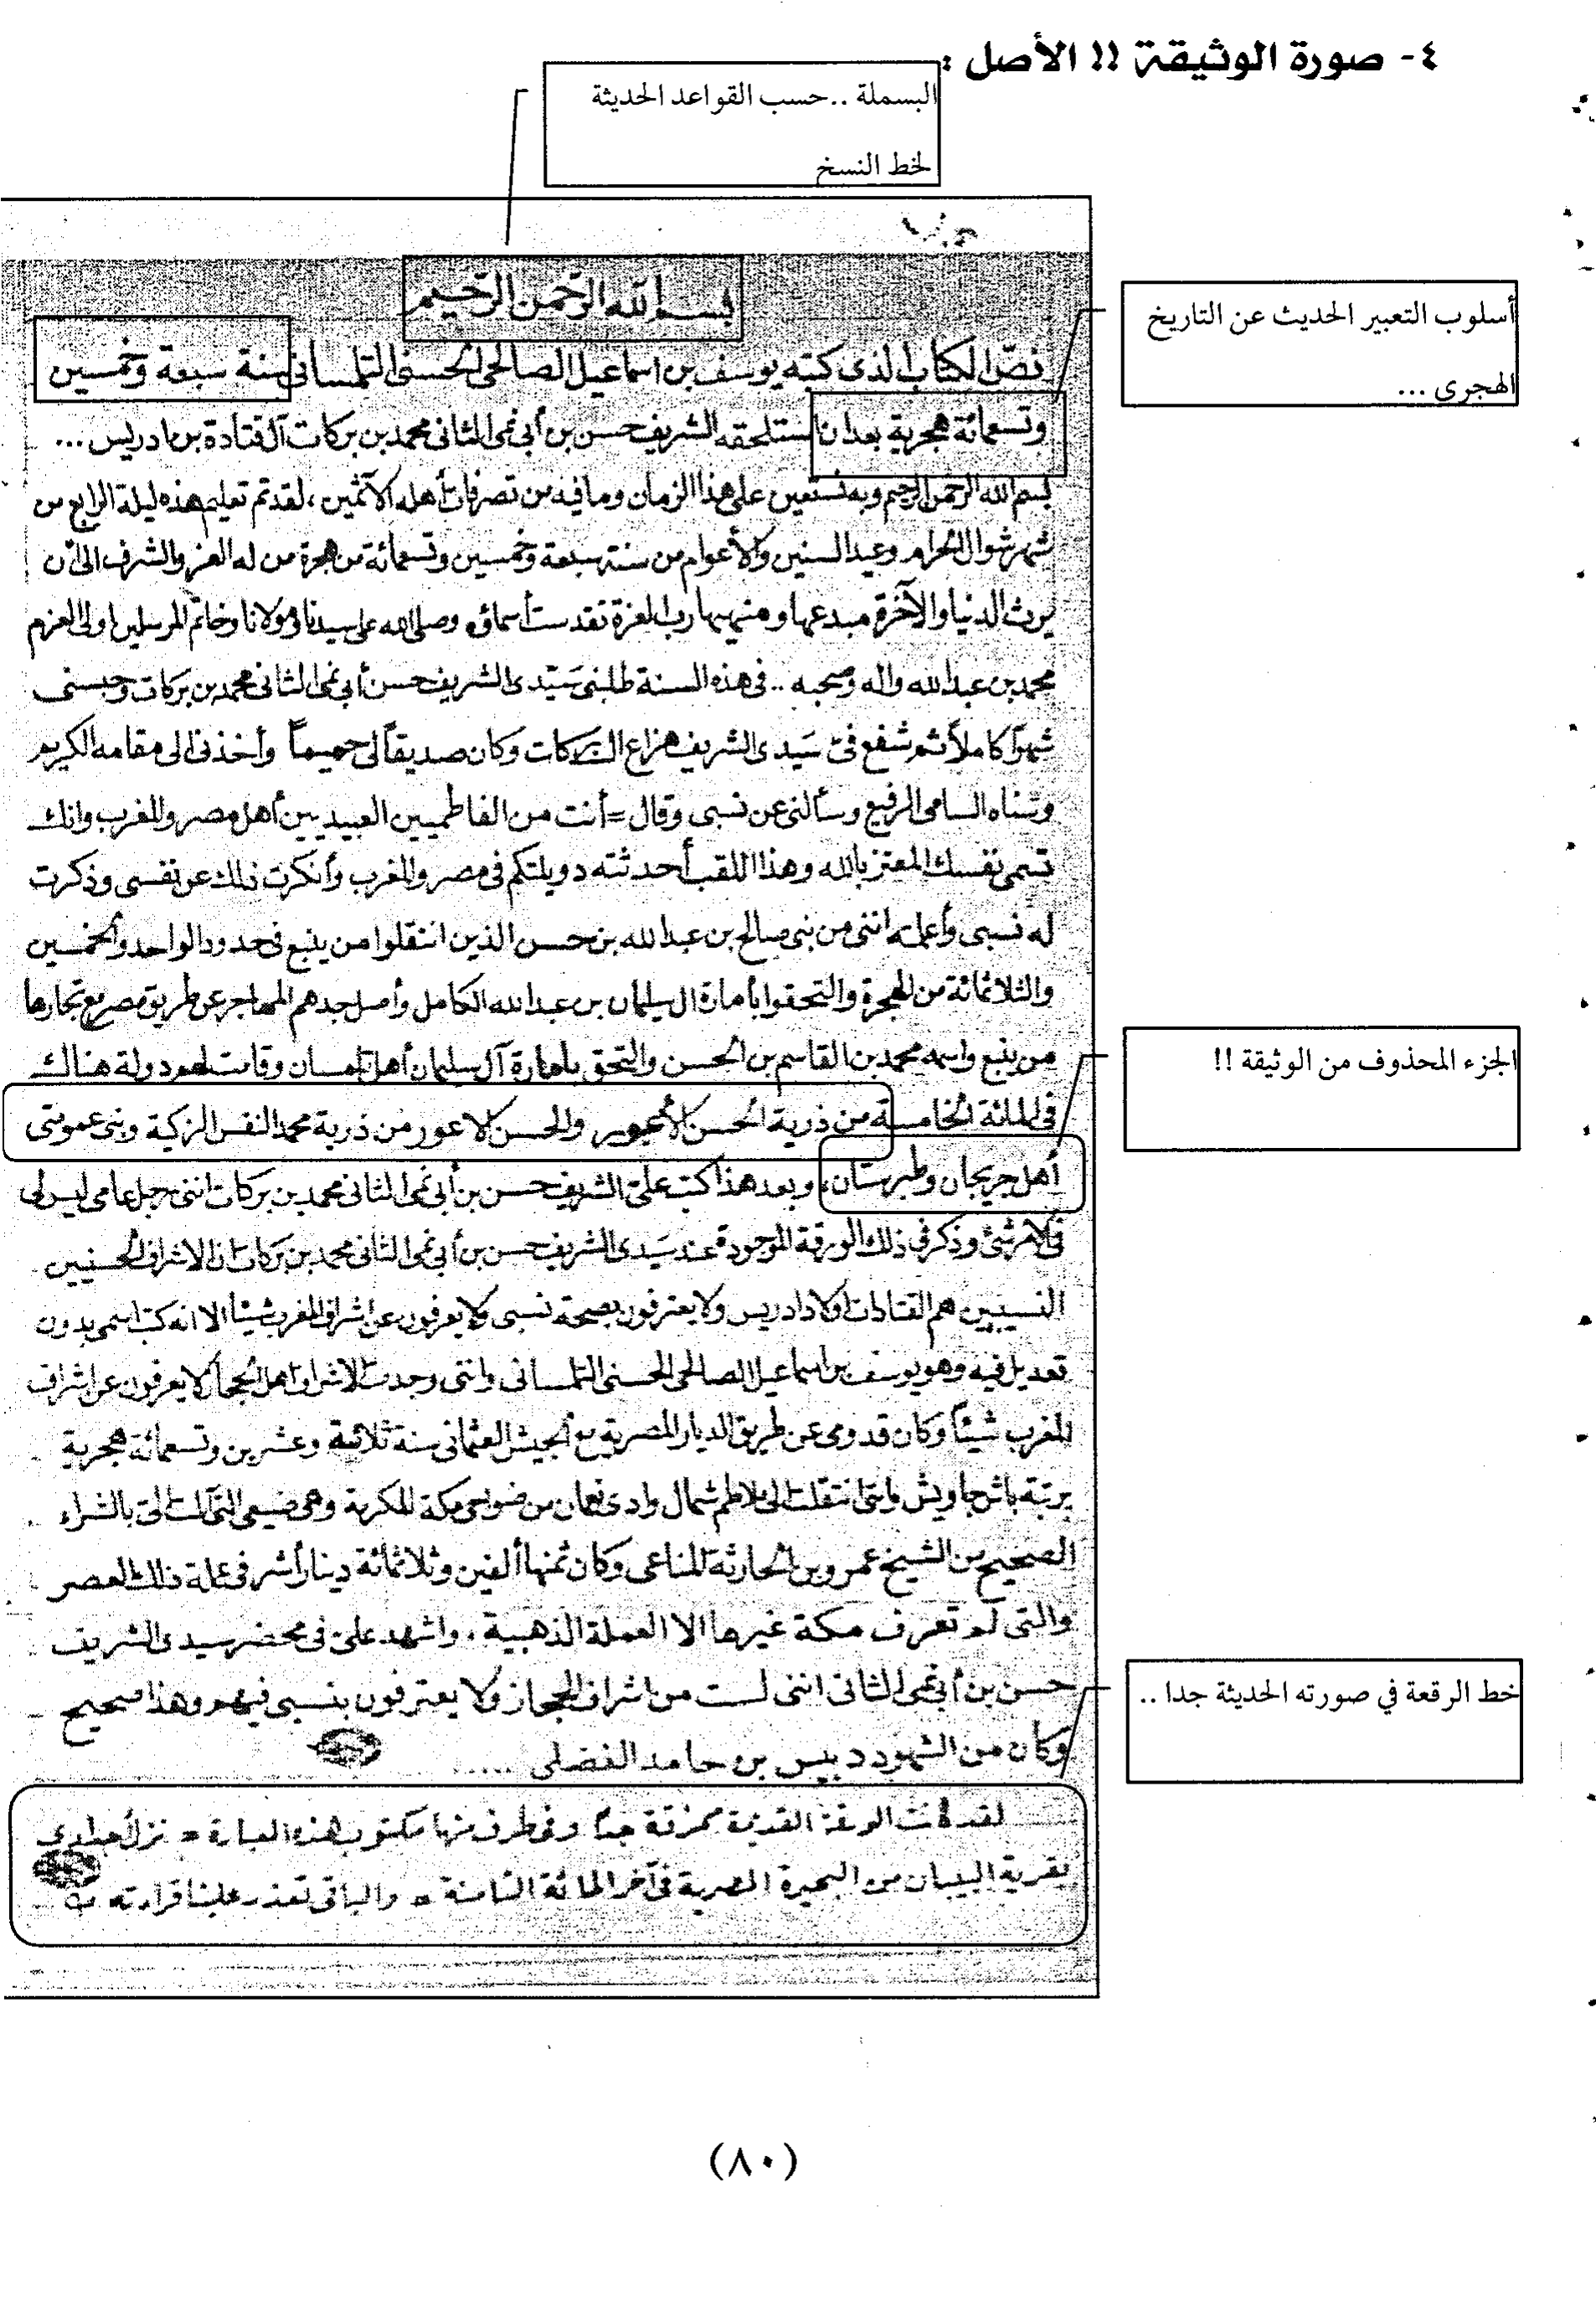 ٤- صورة الوثيقة !! الأصل :
البسملة ..حسب القواعد الحديثة
لخط النسخ
أسلوب التعبير الحديث عن التاريخ
الهجرى ...
الجزء المحذوف من الوثيقة !!
خط الرقعة في صورته الحديثة جدا ..
بسم الله الرحمن الرحيم
نص الكتاب الذى كتبه يوسف بن اسماعيل الصالحى الحسنى التلمسانى سنة سبعة وخمسين
وتسعمائة هجرية بعد ان استلحقه الشريف حسن بن أبى نمى الثانى محمد بن بركات آل قتادة بن ادريس ...
بسم الله الرحمن الرحيم وبه نستعين على هذا الزمان وما فيه من تصرفات أهله الآثمين ، لقد تم تعليم هذه ليلة الرابع من
شهر شوال الحرام وعيد السنين والأعوام من سنة سبعة وخمسين وتسعمائة من هجرة من له العز والشرف الى أن
يرث الدنيا والآخرة مبدعها ومنهيها رب العزة تقدست أسماؤه وصلى الله على سيدنا ومولانا وخاتم المرسلين اولى العزم
محمد بن عبد الله واله وصحبه .. فى هذه السنة طلبنى سيدى الشريف حسن أبى نمى الثانى محمد بن بركات وحبسنى
شهرا كاملا ثم شفع فىّ سيدى الشريف هزاع البركات وكان صديقاً لى حميماً وأخذنى الى مقامه الكريم
وسناه السامى الرفيع وسألنى عن نسبى وقال = أنت من الفاطميين العبيديين أهل مصر والمغرب وانك
تسمى نفسك المعتز بالله وهذا اللقب أحدثته دويلتكم فى مصر والمغرب وأنكرت ذلك عن نفسى وذكرت
له نسبى وأعلمه اننى من بنى صالح بن عبد الله بن حسن الذين انتقلوا من ينبع فى حدود الواحد والخمسين
والثلاثمائة من الهجرة والتحقوا بأمارة ال سليمان بن عبد الله الكامل وأصل جدهم المهاجر عن طريق مصر مع تجارها
من ينبع واسمه محمد بن القاسم بن الحسن والتحق بامارة آل سليمان أهل تلمسان وقامت لهم دولة هناك
فى المائة الخامسة من ذرية الحسن الأعور والحسن الاعور من ذرية محمد النفس الزكية وبنى عمومتى
أهل جريجان وطبرستان، وبعد هذا كتب علىّ الشريف حسن بن أبى نمى الثانى محمد بن بركات اننى رجل عامى ليس لى
فى الامر شئ وذكر فى ذلك الورقة الموجودة عند سيدى الشريف حسن بن أبى نمى الثانى محمد بن بركات ان الاشراف الحسنيين
النسيبين هم القتادات اولاد ادريس ولا يعترفون بصحة نسبى ولا يعرفون عن اشراف المغرب شيئاً الا انه كتب اسمى بدون
تعديل فيه وهو يوسف بن اسماعيل الصالحى الحسنى التلمسانى واننى وجدت الاشراف اهل الحجاز لا يعرفون عن اشراف
المغرب شيئاً وكان قدومى عن طريق الديار المصرية مع الجيش العثمانى سنة ثلاثة وعشرين وتسعمائة هجرية
برتبة باش جاويش واننى انتقلت الى شمال وادى نعمان من ضواحى مكة المكرمة وهى ضيعى التى آلت الىّ بالشراء
الصحيح من الشيخ عمرو بن الحارثة المناعى وكان ثمنها ألفين وثلاثمائة دينار أشرفى عملة ذلك العصر
والتى لم تعرف مكة غيرها الا العملة الذهبية . واشهد علىّ فى محضر سيدى الشريف
حسن بن أبى نمى الثانى اننى لست من اشراف الحجاز ولا يعترفون بنسبى فيهم وهذا صحيح
وكان من الشهود دبيس بن حامد الفضلى .....
لقد كانت الورقة القديمة ممزقة جداً وفى طرف منها مكتوب هذه العبارة = نزل أجدادى
بقرية البيبان من البحيرة المصرية فى آخر المائة الثامنة = والباقى تعذر علينا قراءته
(٨٠)